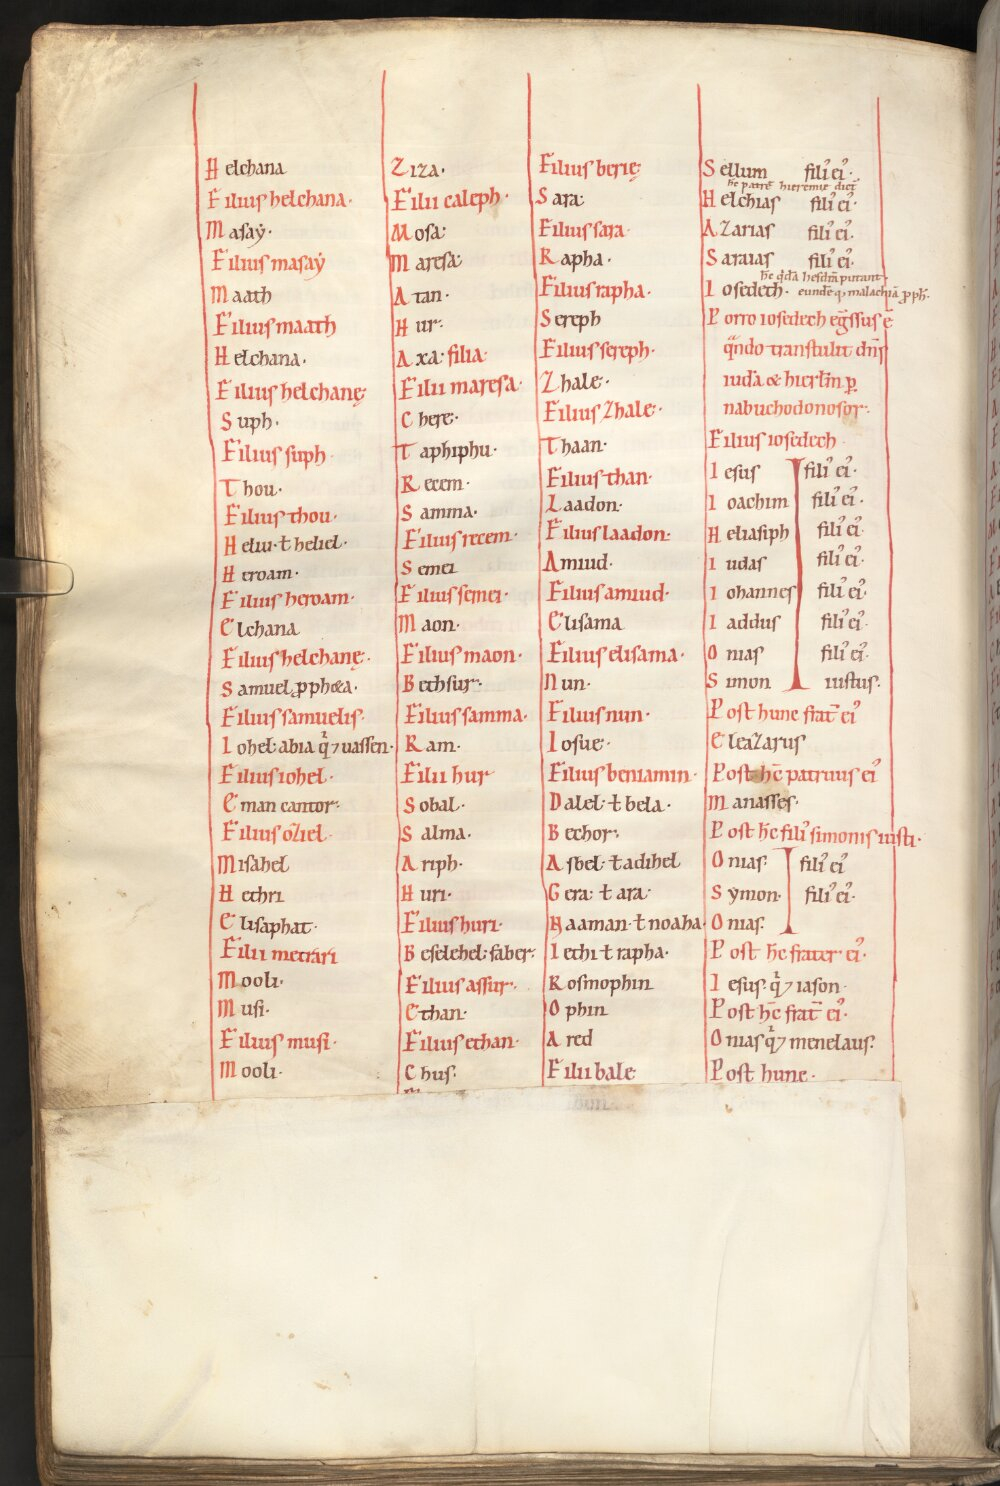 Helchana
Filius helchana·
Masaẏ·
Filius masaẏ
Maath
Filius maath
Helchana·
Filius helchanę
Suph·
Filius suph·
Thou·
Filius thou·
Heliu· ł heliel·
Heroam·
Filius heroam·
Elchana
Filius helchanę·
Samuel ꝓpheta·
Filius samuelis·
Iohel: abia q̄ ⁊ uassen·
Filius iohel·
Eman cantor·
Filius oziel·
Misahel
Hethri
Elisaphat·
Filii merari
Mooli·
Musi·
Filius musi·
Mooli·
Ziza·
Filii caleph·
Mosa·
Maresa·
Atan·
Hur·
Axa: filia·
Filii maresa·
Chere·
Taphiphu·
Recem·
Samma·
Filius recem·
Semei
Filius semei·
Maon·
Filius maon·
Bethsur·
Filius samma·
Ram·
Filii hur
Sobal·
Salma·
Ariph·
Huri·
Filius huri·
Beselehel: faber·
Filius assur·
Ethan·
Filius ethan·
Chus·
Filius berię
Sara·
Filius sara·
Rapha·
Filius rapha·
Sereph
Filius sereph·
Zhale·
Filius Zhale·
Thaan·
Filius than·
Laadon·
Filius laadon·
Amiud·
Filius amiud·
Elisama
Filius elisama·
Nun·
Filius nun·
Iosue·
Filius beniamin·
Dalel· ł bela·
Bechor·
Asbel· ł adihel
Gera: ł ara·
Naaman· ł noaha·
Iethi ł rapha·
Rosmophin
Ophin
Ared
Filii bale
Sellum fili᾿ ei᾿·
hc̄ patrē hieremie dict̄
Helchias fili᾿ ei᾿·
Azarias fili᾿ ei᾿·
Saraias fili᾿ ei᾿·
hc̄ q̄dā hesdrā putant·
Iosedech· eundē q; malachiā ꝓph̄·
Porro iosedech eḡssus ē
q̄ndo transtulit dn̄s
iudā & hierl̄m ꝑ
nabuchodonosor·
Filius iosedech
Iesus fili᾿ ei᾿·
Ioachim fili᾿ ei᾿·
Heliasiph fili᾿ ei᾿·
Iudas fili᾿ ei᾿·
Iohannes fili᾿ ei᾿·
Iaddus fili᾿ ei᾿·
Onias fili᾿ ei᾿·
Simon iustus·
Post hunc frat̄ ei᾿
Eleazarus
Post hc̄ patruus ei᾿
Manasses·
Post hc̄ fili᾿ simonis iusti·
Onias· fili᾿ ei᾿
Sẏmon· fili᾿ ei᾿·
Onias·
Post hc̄ frater ei᾿·
Iesus· q̄ ⁊ iason·
Post hc̄ frat̄ ei᾿·
Onias q̄ ⁊ menelaus·
Post hunc·